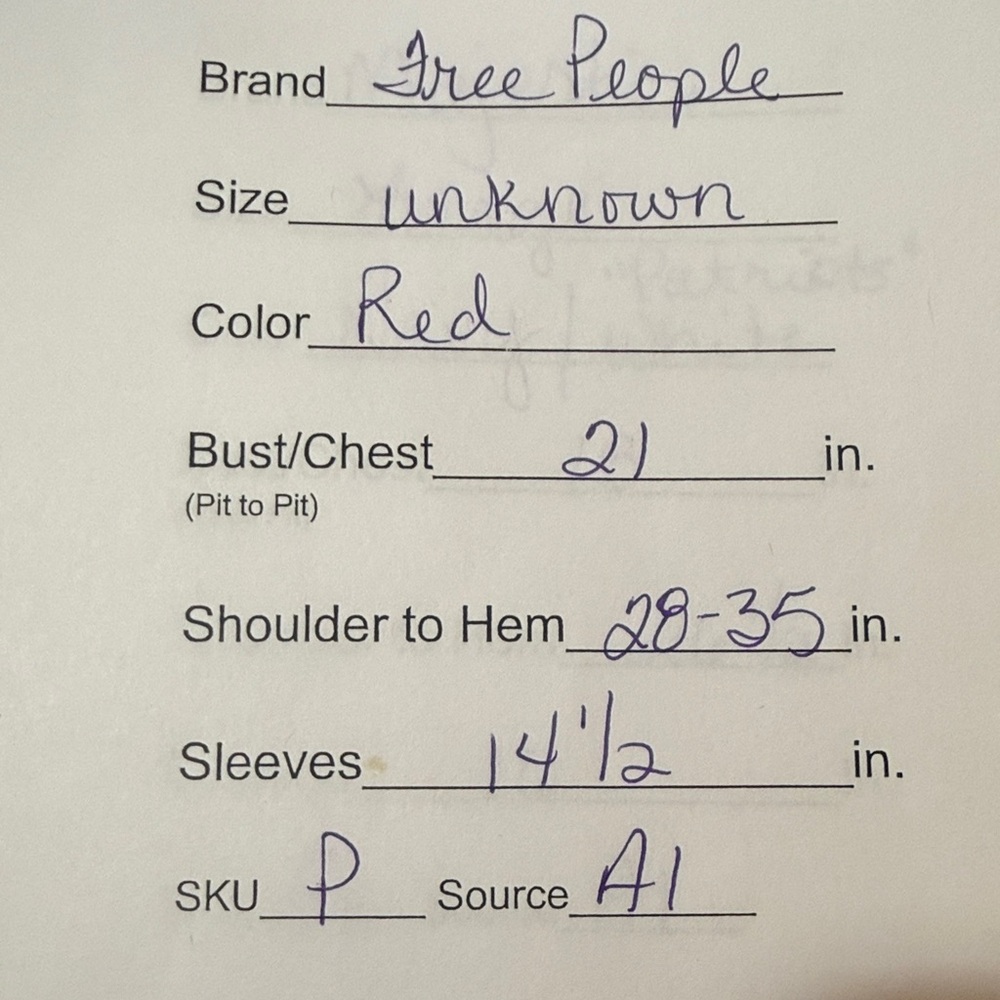 Brand Free People
Size unknown
Color Red
Bust/Chest 21 in.
(Pit to Pit)
Shoulder to Hem 28-35 in.
Sleeves 14 1/2 in.
SKU P Source A1